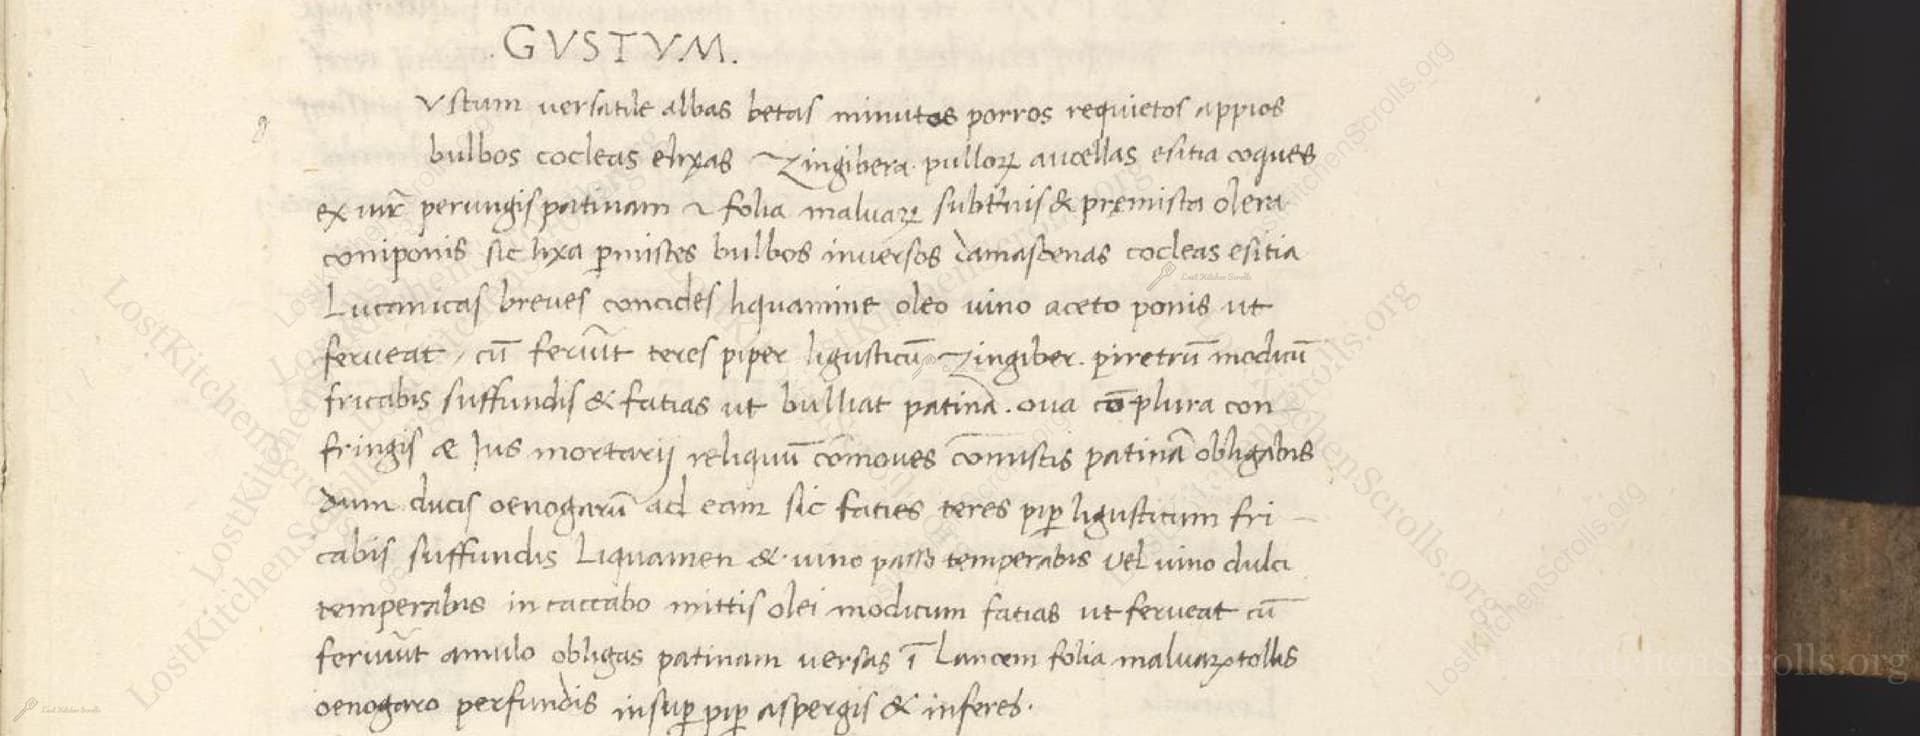 .GVSTVM.
g Vstum versatile albas betas minutas porros requietos appios
bulbos cocleas elixas Zingibera. pulloꝝ aucellas esitia coques
ex iur̄ perungis patinam & folia maluaꝝ subt̄nis & pręmista olera
componis sic lixa p̄mistes bulbos inversos damascenas cocleas esitia
Lucanicas breves concides liquamine oleo vino aceto ponis ut
ferveat / cū ferūt teres piper ligusticū Zingiber. piretrū modicū
fricabis suffundis & fatias ut bulliat patina. ova cōplura con
fringis & Ius mortarij reliquū cōmoves cōmistis patinā obligabis
dum ducis oenogarū ad eam sic faties teres pip̄ ligusticum fri-
cabis suffundis Liquamen & vino passo temperabis vel vino dulci
temperabis in caccabo mittis olei modicum fatias ut ferveat cū
ferūt amulo obligas patinam versas ī Lancem folia maluaꝝ tollis
oenogaro perfundis insup̄ pip̄ aspergis & inferes.
LostKitchenScrolls.org
Lost Kitchen Scrolls